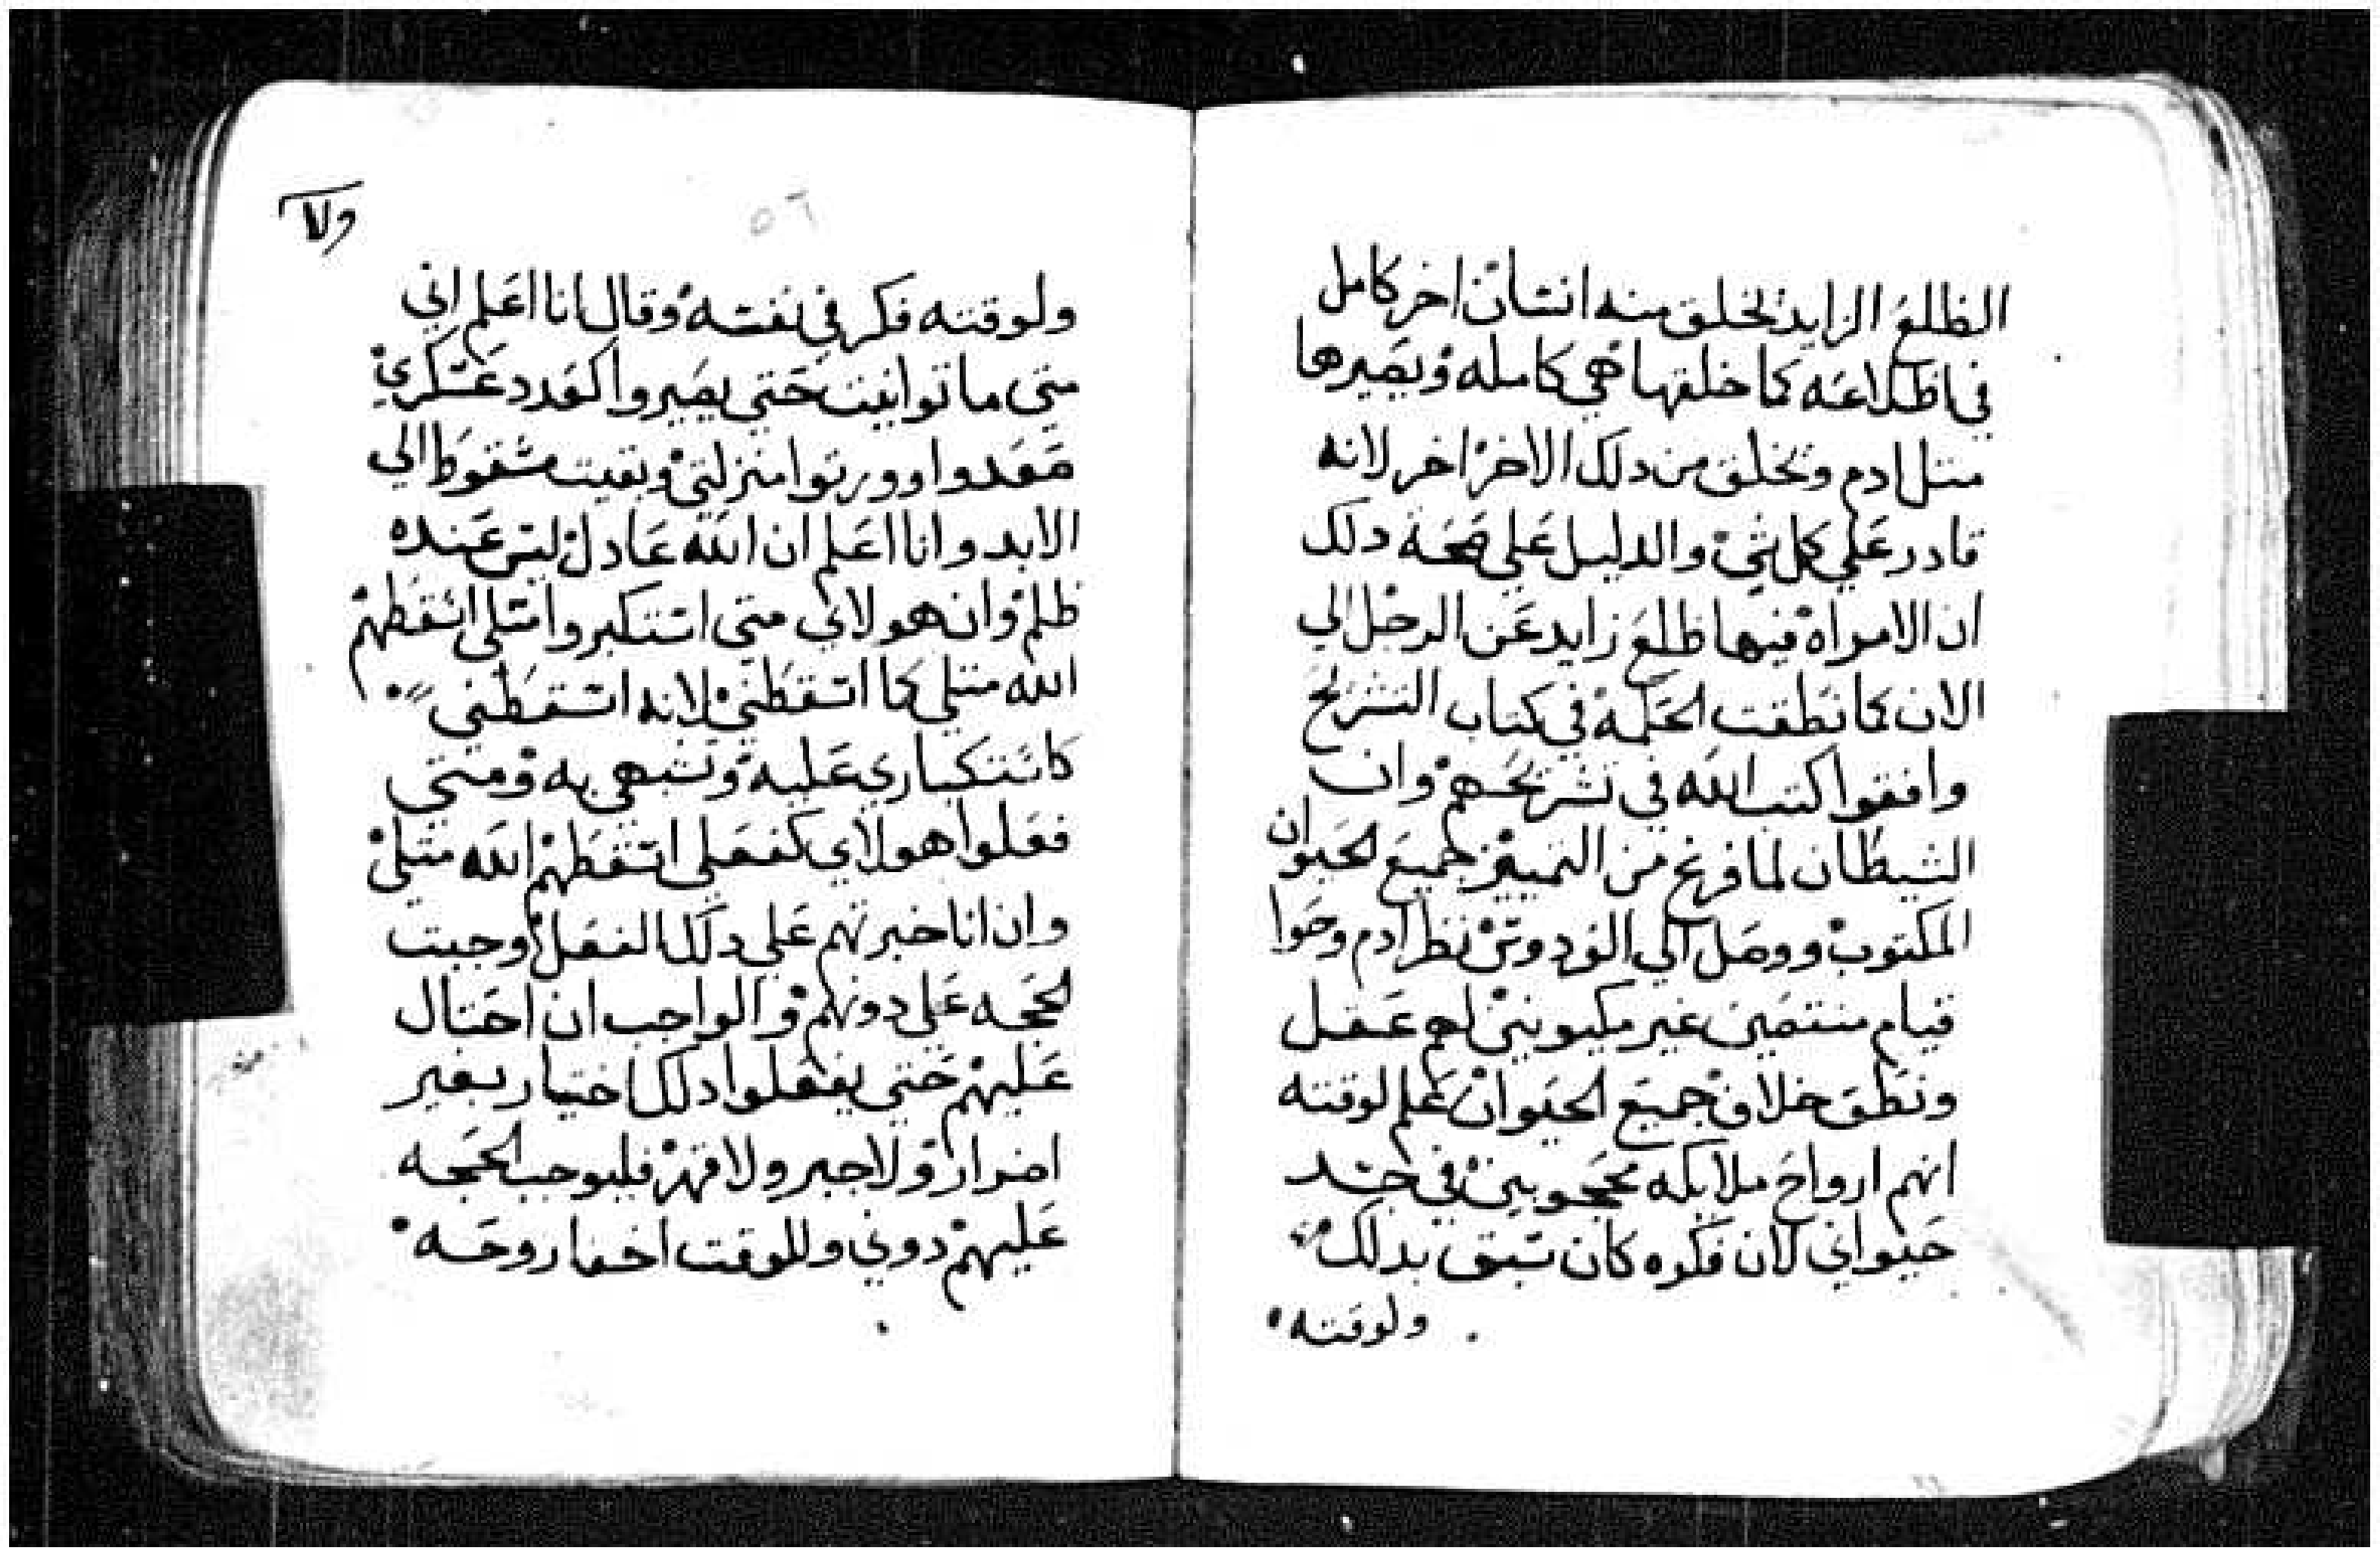 الظلع الزايد نخلق منه انسان اخر كامل
في اظلاعه كما خلقها هي كامله ويصيرها
متل ادم ونخلق من دلك الاخر اخر لانه
قادر علي كل شي والدليل علي صحة دلك
ان الامراه فيها ظلع زايد عن الرجل الي
الان كما نطقت الحكمة في كتاب التشريح
وافقوا كتب الله في تشريحهم وان
الشيطان لما فرغ من التمييز جميع الحيوان
المكتوب ووصل الي الفردوس نظر ادم وحوا
قيام منتصبين غير مكبوبين لهم عقل
ونطق خلاف جميع الحيوان علم لوقته
انهم ارواح ملايكه محجوبين في جسد
حيواني لان فكره كان سبق بدلك
ولوقته
ولا
٥٦
ولوقته فكر في نفسه وقال انا اعلم اني
متي ما توانيت حتي يصيروا كعدد عسكري
صعدوا وورتوا منزلتي وبقيت مسقوط الي
الابد وانا اعلم ان الله عادل ليس عنده
ظلم وان هولاي متي استكبروا متلي اسقطهم
الله متلي كما اسقطني لانه اسقطني
كاستكباري عليه وتشبهي به ومتي
فعلوا هولاي كفعلي اسقطهم الله متلي
وان انا خبرتهم علي دلك الفعل وجبت
الحجه علي دونهم والواجب ان احتال
عليهم حتي يفعلوا دلك اختيار بغير
اضرار ولا جبر ولا قهر فليوجب الحجه
عليهم دوني وللوقت اخفا روحه